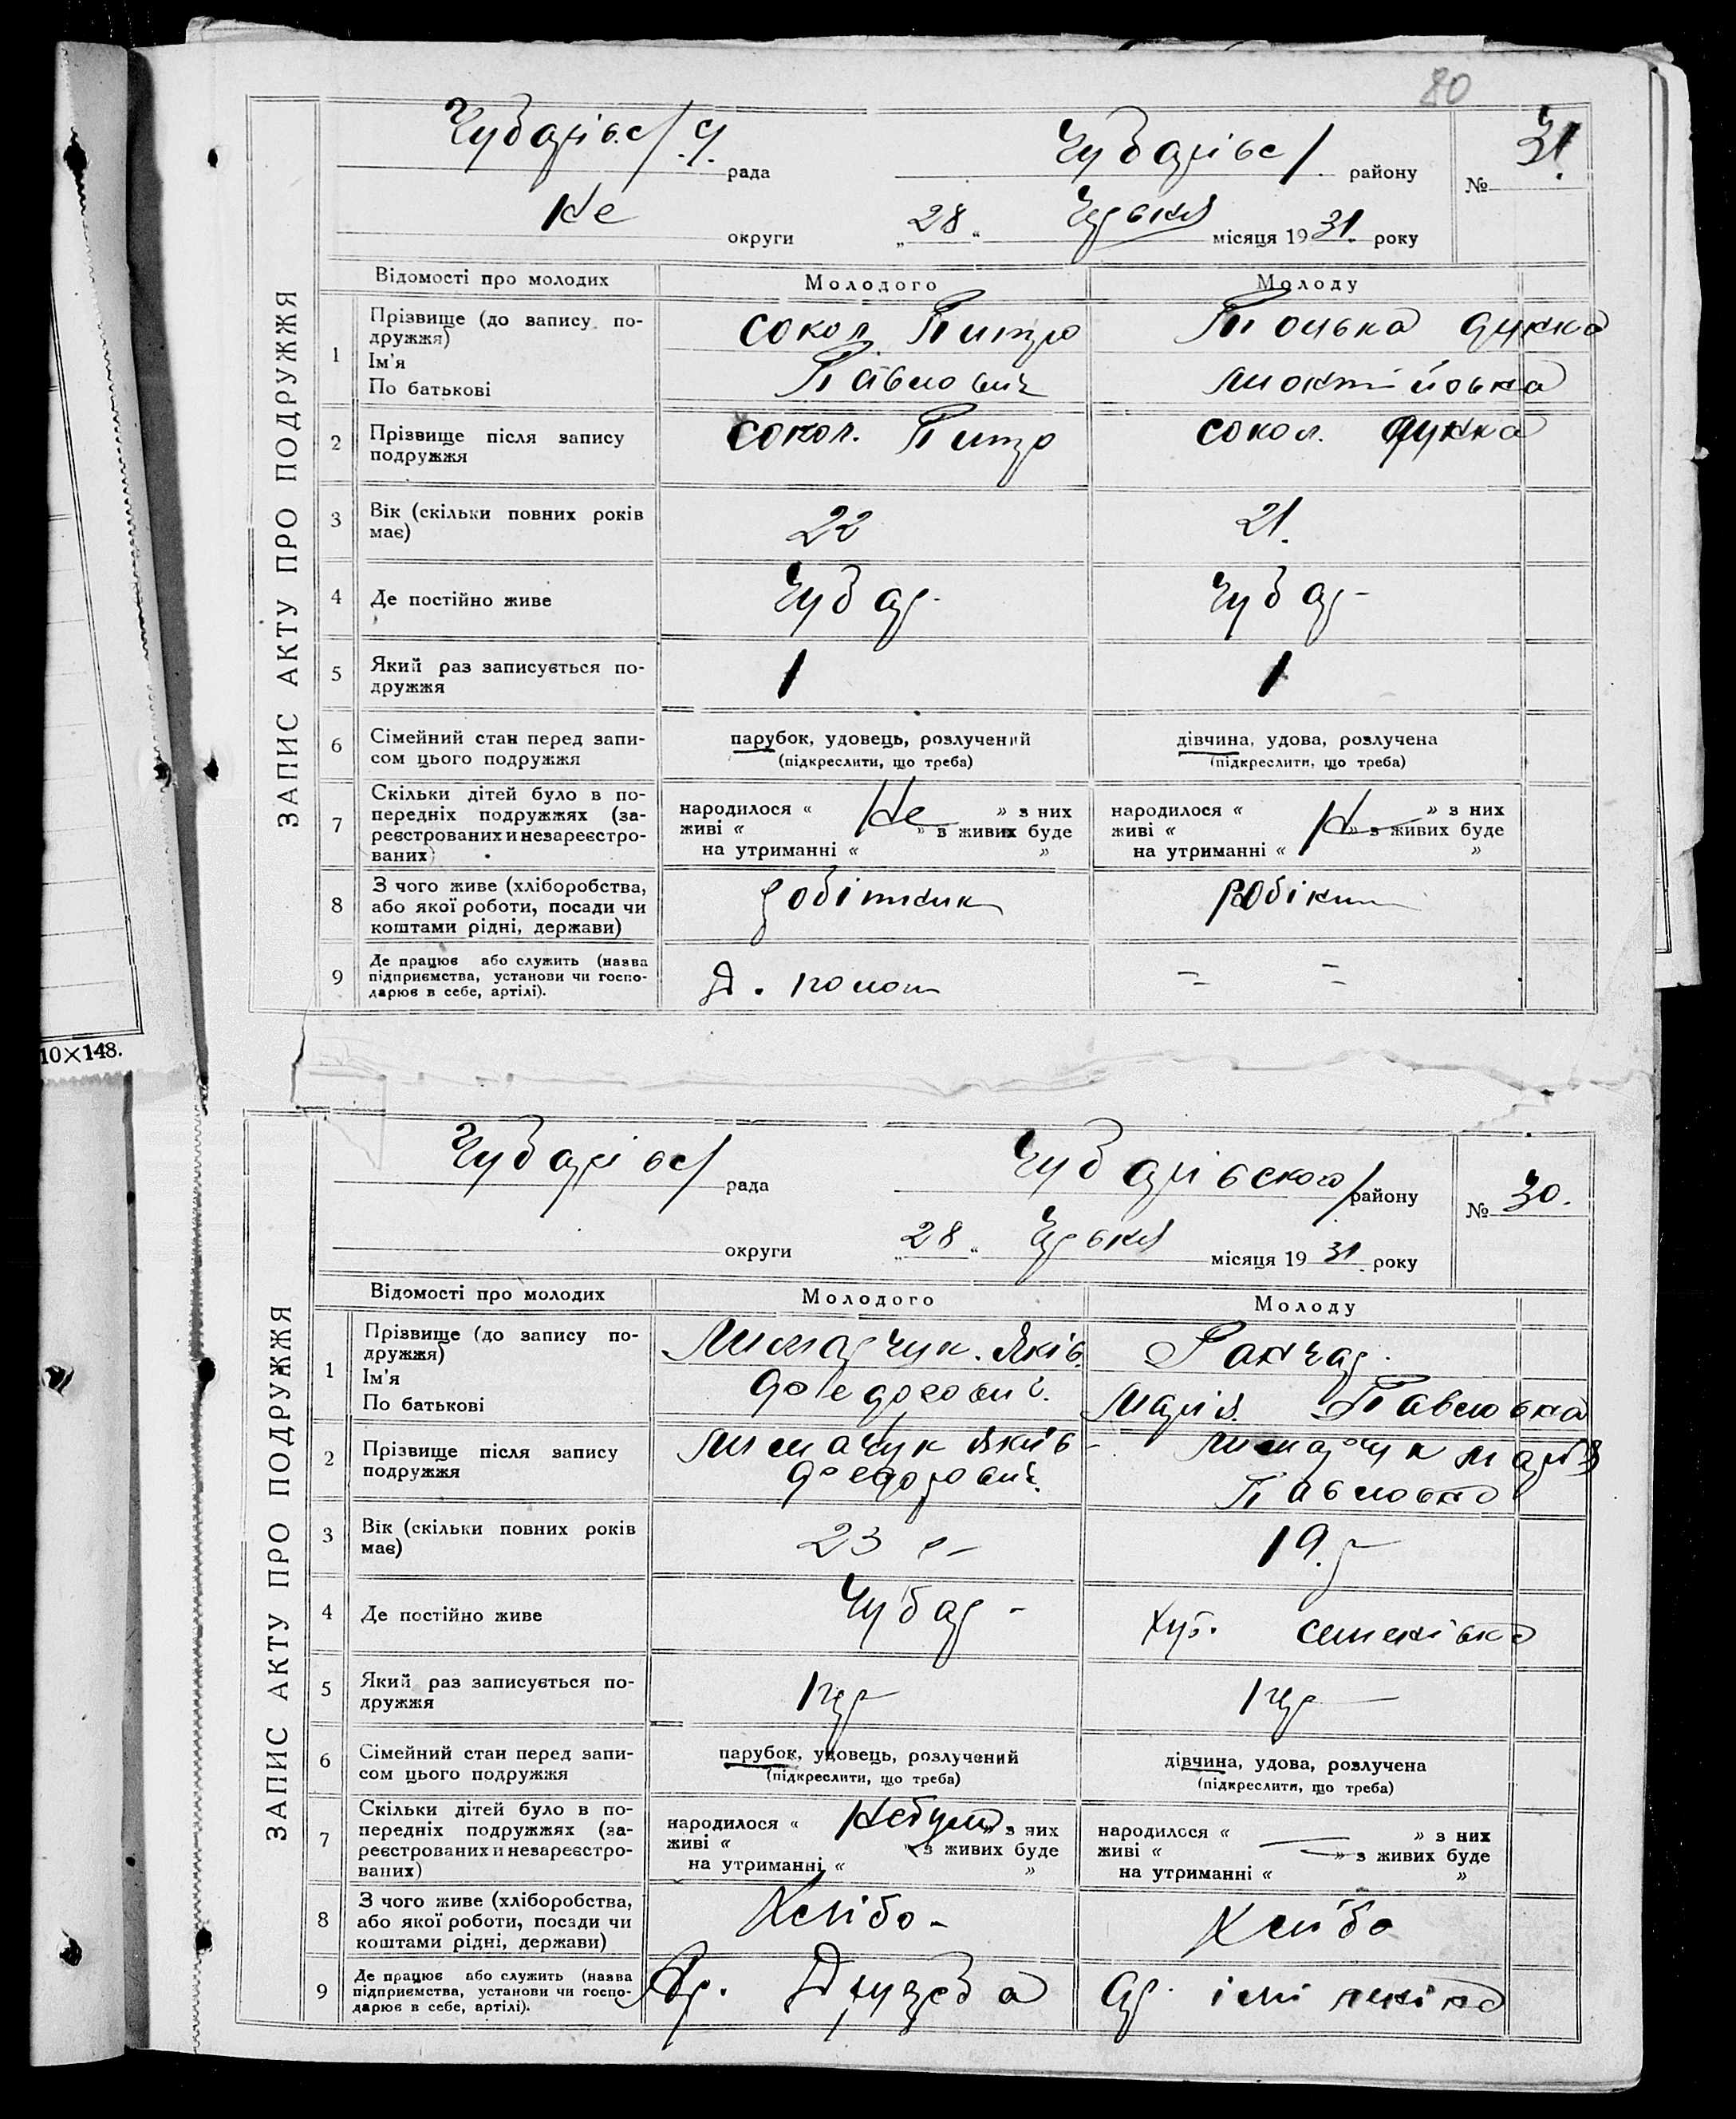 80
ЗАПИС АКТУ ПРО ПОДРУЖЖЯ
Чубарівс/ рада Чубарівс/ району № 31.
Не округи „28“ Червня місяця 1931. року
Відомості про молодих Молодого Молоду
1 Прізвище (до запису по-
дружжя)
Ім'я
По батькові
Сокол Питро
Павлович
2 Прізвище після запису
подружжя
Сокол. Питро Сокол.
3 Вік (скільки повних років
має)
22 21.
4 Де постійно живе Чубар- Чубар-
5 Який раз записується по-
дружжя
1 1
6 Сімейний стан перед запи-
сом цього подружжя
парубок, удовець, розлучений
(підкреслити, що треба)
дівчина, удова, розлучена
(підкреслити, що треба)
7 Скільки дітей було в по-
передніх подружжях (за-
реєстрованих и незареєстро-
ваних)
народилося « Не » з них
живі « » в живих буде
на утриманні « »
народилося « Н » з них
живі « » з живих буде
на утриманні « »
8 З чого живе (хліборобства,
або якої роботи, посади чи
коштами рідні, держави)
робітник
9 Де працює або служить (назва
підприємства, установи чи госпо-
дарює в себе, артілі).
- -
10×148.
ЗАПИС АКТУ ПРО ПОДРУЖЖЯ
Чубарівс/ рада Чубарівского/ району № 30.
округи „28“ Червня місяця 1931. року
Відомості про молодих Молодого Молоду
1 Прізвище (до запису по-
дружжя)
Ім'я
По батькові
Яків
Федорович.
Марія. Павловна
2 Прізвище після запису
подружжя
Яків -
Федорович. Марія
Павловна
3 Вік (скільки повних років
має)
23 р- 19. р
4 Де постійно живе Чубар - Хут. Семенівка
5 Який раз записується по-
дружжя
1 1
6 Сімейний стан перед запи-
сом цього подружжя
парубок, удовець, розлучений
(підкреслити, що треба)
дівчина, удова, розлучена
(підкреслити, що треба)
7 Скільки дітей було в по-
передніх подружжях (за-
реєстрованих и незареєстро-
ваних)
народилося « Небуло » з них
живі « » з живих буде
на утриманні « »
народилося « » з них
живі « » з живих буде
на утриманні « »
8 З чого живе (хліборобства,
або якої роботи, посади чи
коштами рідні, держави)
Хлібо - Хлібо
9 Де працює або служить (назва
підприємства, установи чи госпо-
дарює в себе, артілі).
Ар. Дружба Ар. ім